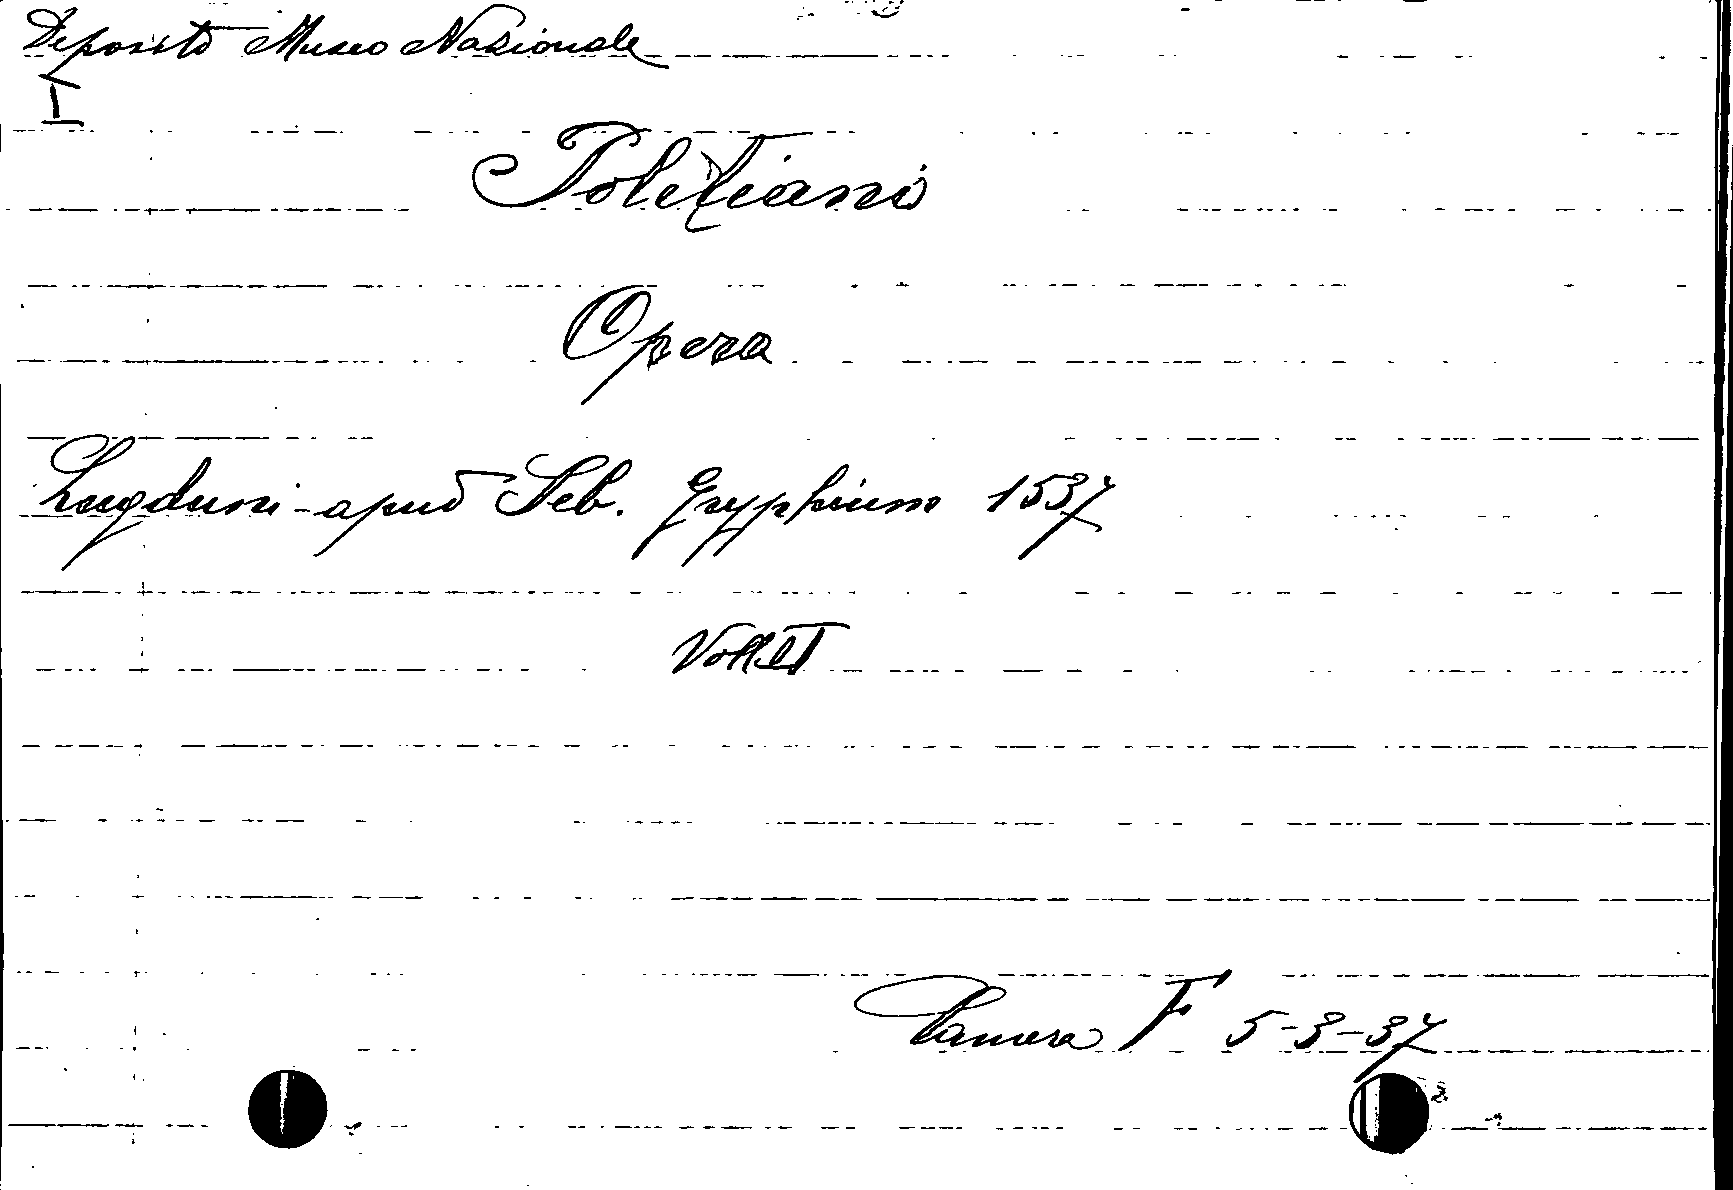 Deposito Museo Nazionale
I
Politiani
Opera
Lugduni apud Seb. Gryphium 1537
Camera F 5-3-37